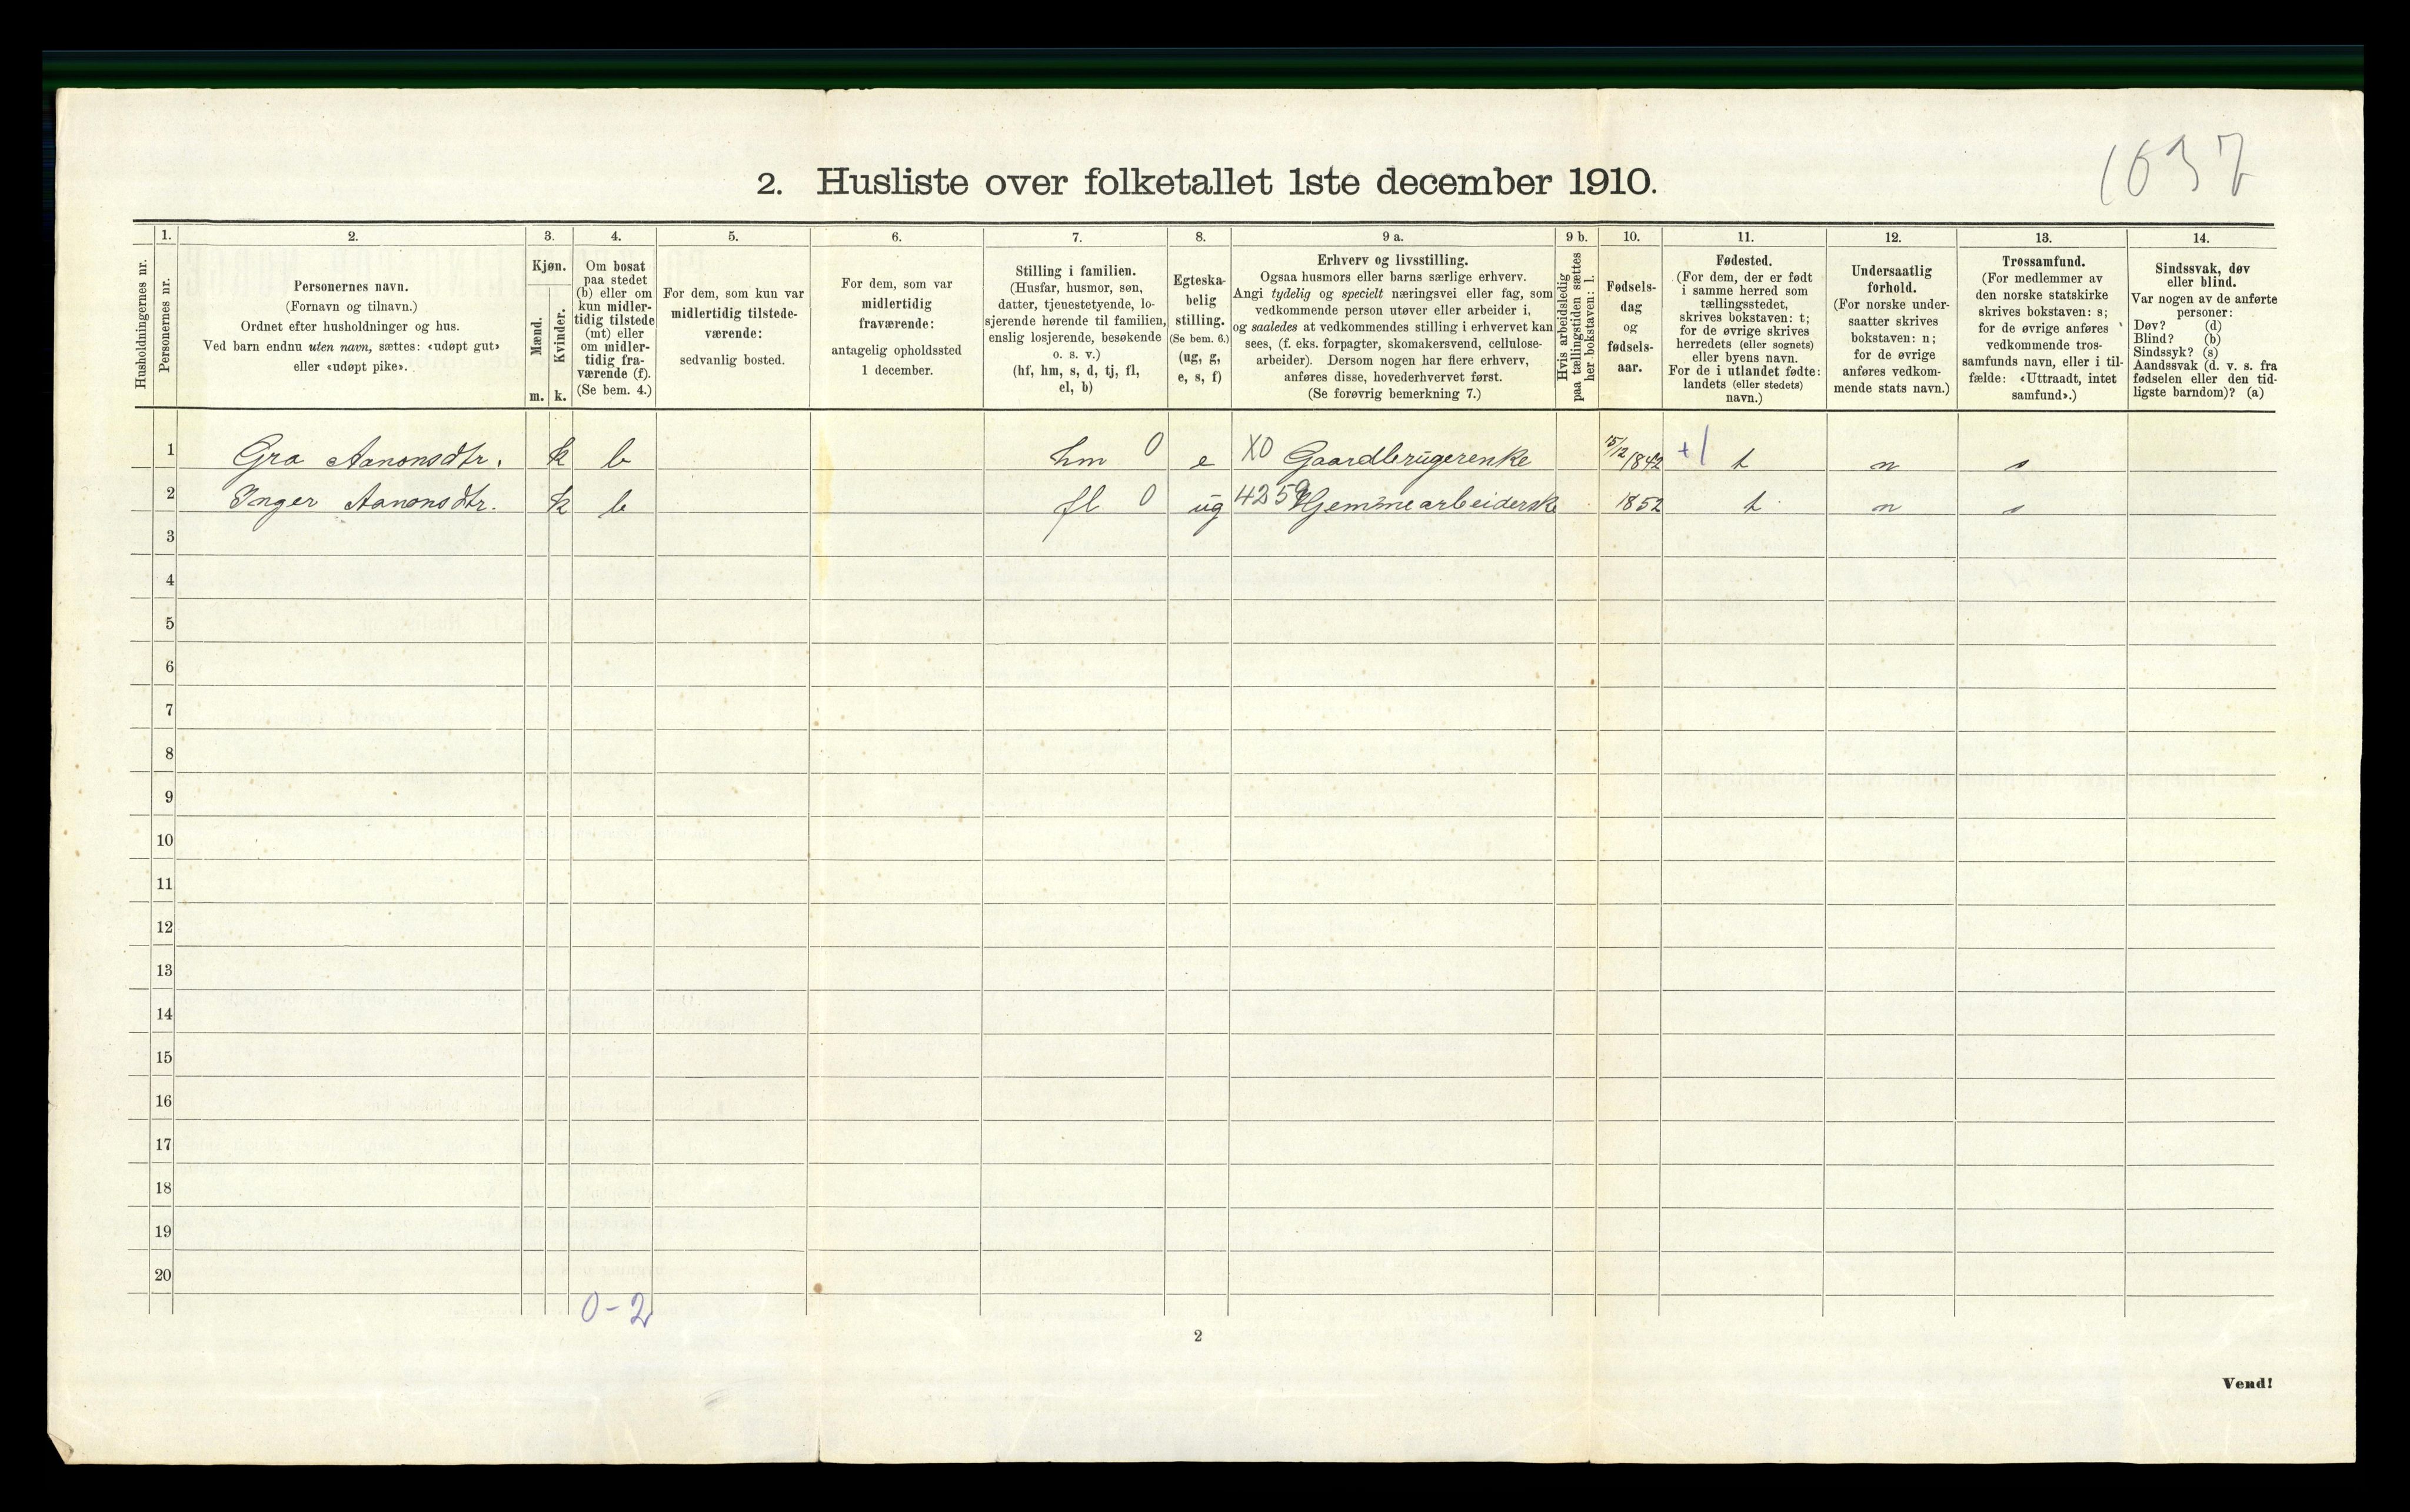 1037
2. Husliste over folketallet 1ste december 1910.
Husholdningernes nr.
1.
Personernes nr.
2.
Personernes navn.
(Fornavn og tilnavn.)
Ordnet efter husholdninger og hus.
Ved barn endnu uten navn, sættes: «udøpt gut»
eller «udøpt pike».
3.
Kjøn.
Mænd.
Kvinder.
m. k.
4.
Om bosat
paa stedet
(b) eller om
kun midler-
tidig tilstede
(mt) eller
om midler-
tidig fra-
værende (f).
(Se bem. 4.)
5.
For dem, som kun var
midlertidig tilstede-
værende:
sedvanlig bosted.
6.
For dem, som var
midlertidig
fraværende:
antagelig opholdssted
1 december.
7.
Stilling i familien.
(Husfar, husmor, søn,
datter, tjenestetyende, lo-
sjerende hørende til familien,
enslig losjerende, besøkende
o. s. v.)
(hf, hm, s, d, tj, fl,
el, b)
8.
Egteska-
belig
stilling.
(Se bem. 6.)
(ug, g,
e, s, f)
9 a.
Erhverv og livsstilling.
Ogsaa husmors eller barns særlige erhverv.
Angi tydelig og specielt næringsvei eller fag, som
vedkommende person utøver eller arbeider i,
og saaledes at vedkommendes stilling i erhvervet kan
sees, (f. eks. forpagter, skomakersvend, cellulose-
arbeider). Dersom nogen har flere erhverv,
anføres disse, hovederhvervet først.
(Se forøvrig bemerkning 7.)
9 b.
Hvis arbeidsledig
paa tællingstiden sættes
her bokstaven: l.
10.
Fødsels-
dag
og
fødsels-
aar.
11.
Fødested.
(For dem, der er født
i samme herred som
tællingsstedet,
skrives bokstaven: t;
for de øvrige skrives
herredets (eller sognets)
eller byens navn.
For de i utlandet fødte:
landets (eller stedets)
navn.)
12.
Undersaatlig
forhold.
(For norske under-
saatter skrives
bokstaven: n;
for de øvrige
anføres vedkom-
mende stats navn.)
13.
Trossamfund.
(For medlemmer av
den norske statskirke
skrives bokstaven: s;
for de øvrige anføres
vedkommende tros-
samfunds navn, eller i til-
fælde: «Uttraadt, intet
samfund».)
14.
Sindssvak, døv
eller blind.
Var nogen av de anførte
personer:
Døv? (d)
Blind? (b)
Sindssyk? (s)
Aandssvak (d. v. s. fra
fødselen eller den tid-
ligste barndom)? (a)
1 Gro Aanonsdtr. k b hm 0 e X0 Gaardbrugerenke 15/12 1842 +1 t n s
2 Inger Aanonsdtr. k b fl 0 ug 4259 Hjemmearbeiderske 1852 t n s
3
4
5
6
7
8
9
10
11
12
13
14
15
16
17
18
19
20
0-2
2
Vend!